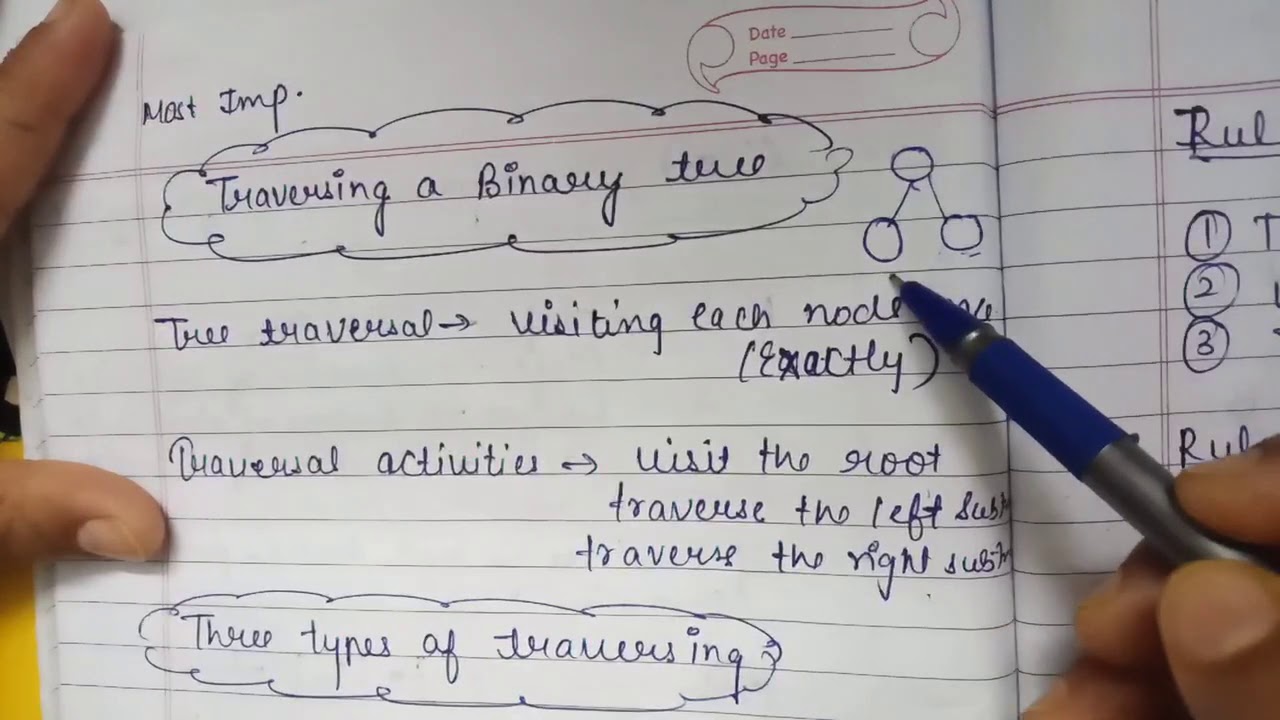 Date
Page
Most Imp.
Traversing a Binary tree
Tree traversal → visiting each node
(Exactly)
Traversal activities → visit the root
traverse the left subt
traverse the right subtr
Three types of traversing
Rul
① T
②
③
Rul